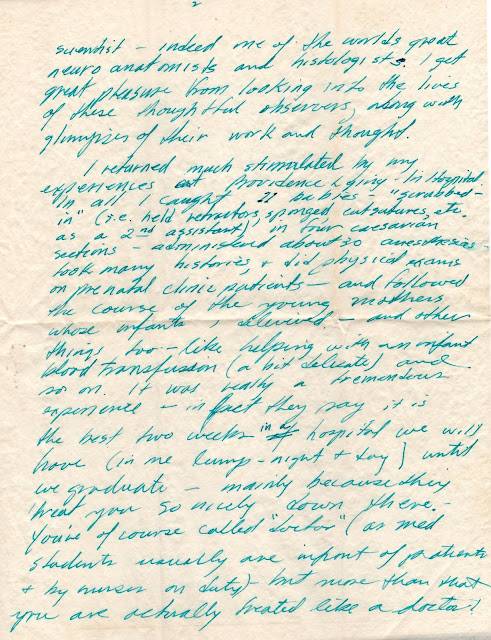 2
scientist – indeed one of the worlds great
neuro anatomists and histologists. I get
great pleasure from looking into the lives
of these thoughtful observers, along with
glimpses of their work and thought.
I returned much stimulated by my
experiences at Providence Lying-In Hospital.
In all I caught 21 babies – "scrubbed-
in" (i.e. held retractors, sponged, cut sutures, etc.
as a 2nd assistant), in four caesarian
sections – administered about 30 anesthesias –
took many histories, & did physical exams
on prenatal clinic patients – and followed
the course of the young mothers
whose infants I delivered – and other
things too – like helping with an infant
blood transfusion (a bit delicate) and
so on. It was really a tremendous
experience – in fact they say it is
the best two weeks in a hospital we will
have (in one lump – night & day) until
we graduate – mainly because they
treat you so nicely down there. –
You're of course called "doctor" (as med
students usually are infront of patients
& by nurses on duty) – but more than that
you are actually treated like a doctor!